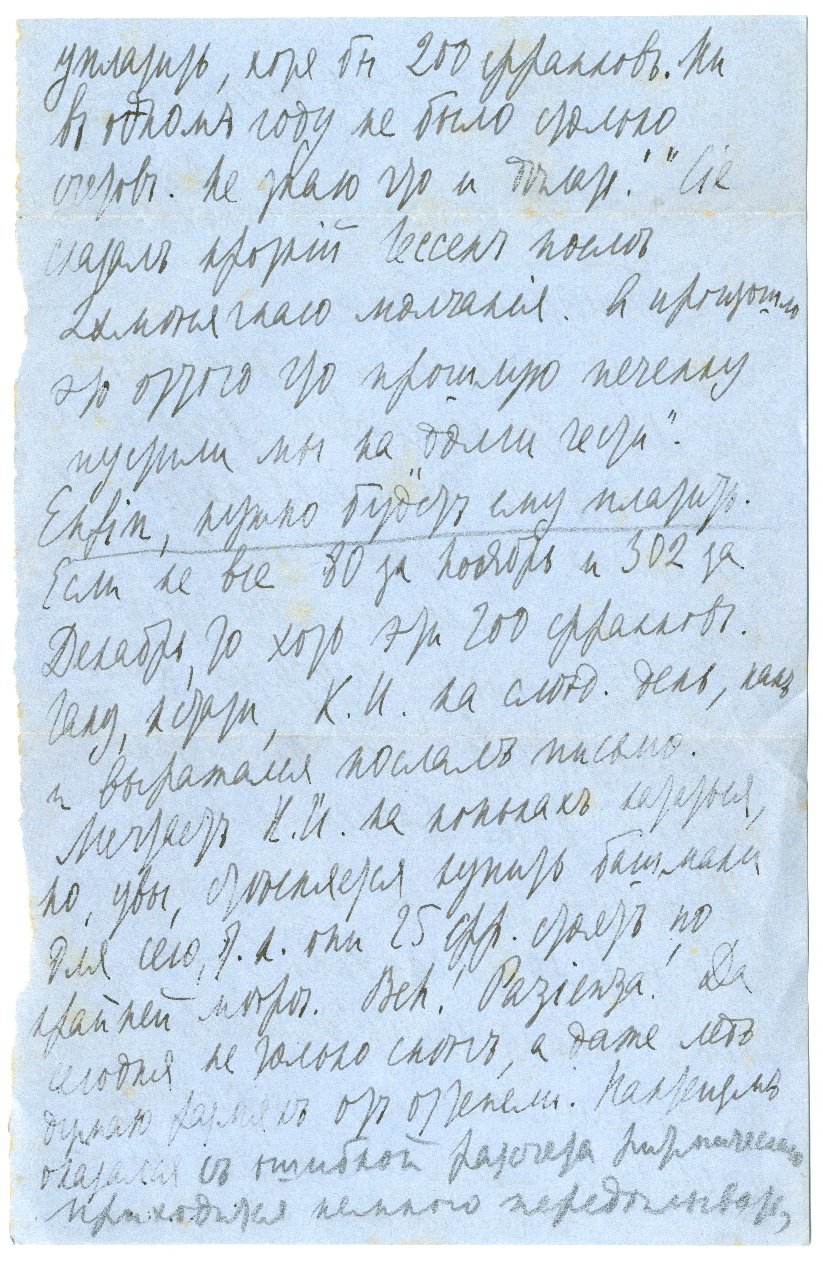 уплатить, хотя бы 200 франковъ. Ни
въ одномъ году не было столько
счетовъ. Не знаю что и дѣлать!" Сіе
сказалъ кроткій Гессенъ послѣ
2хмѣсячнаго молчанія. А произошло
это оттого что прошлую печенку
пустили мы на "долги чести".
Enfin, нужно будетъ ему платить.
Если не все 80 за Ноябрь и 302 за
Декабрь, то хоть эти 200 франковъ.
Гану, кстати, К.И. на слѣд. день, какъ
и выражался послалъ письмо.
Мечтаетъ К.И. на конькахъ кататься,
но, увы, стѣсняется купить башмаки
для сего, т.к. они 25 фр. стоятъ по
крайней мѣрѣ. Beh! Pazienza! Да
сегодня не только снѣгъ, а даже ледъ
думаю отъ оттепели.
оказался съ ошибкой разсчета ритмическаго
Приходится немного передѣлывать,